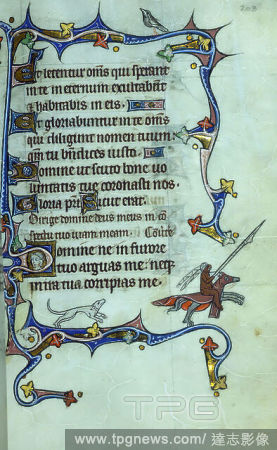 203
Et letentur om̅s qui sperant
in te in eternum exultabūt
⁊ habitabis in eis.
Et gloriabuntur in te om̅s
qui diligunt nomen tuum
qm̅ tu bn̅dices iusto.
Domine ut scuto bone uo
luntatis tue coronasti nos.
Gloria pri Sicut erat.
Dirige domine deus meus in cō
spectu tuo uiam meam.
Domine ne in furore
tuo arguas me: neqꝫ
in ira tua corripias me.
TPG
www.tpgnews.com/ 達志影像